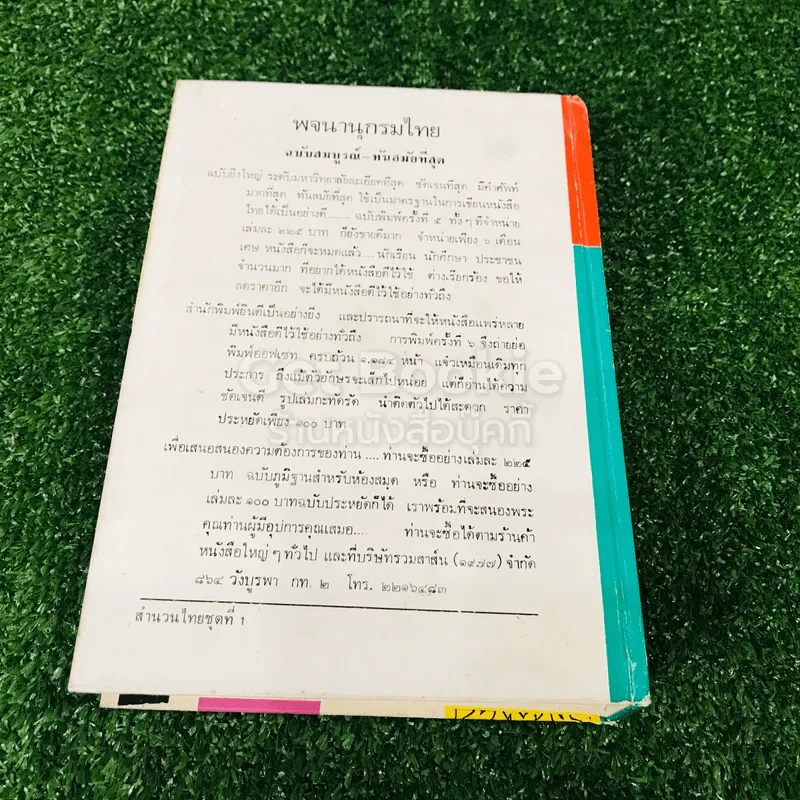 พจนานุกรมไทย
ฉบับสมบูรณ์–ทันสมัยที่สุด
ฉบับยิ่งใหญ่ ระดับมหาวิทยาลัยละเอียดที่สุด ชัดเจนที่สุด มีคำศัพท์
มากที่สุด ทันสมัยที่สุด ใช้เป็นมาตรฐานในการเขียนหนังสือ
ไทยได้เป็นอย่างดี........ ฉบับพิมพ์ครั้งที่ ๕ ทั้ง ๆ ที่จำหน่าย
เล่มละ ๒๒๕ บาท ก็ยังขายดีมาก จำหน่ายเพียง ๖ เดือน
เศษ หนังสือก็จะหมดแล้ว.... นักเรียน นักศึกษา ประชาชน
จำนวนมาก ที่อยากได้หนังสือดีไว้ใช้ ต่างเรียกร้อง ขอให้
ลดราคาอีก จะได้มีหนังสือดีไว้ใช้อย่างทั่วถึง
สำนักพิมพ์ยินดีเป็นอย่างยิ่ง และปรารถนาที่จะให้หนังสือแพร่หลาย
มีหนังสือดีไว้ใช้อย่างทั่วถึง การพิมพ์ครั้งที่ ๖ จึงถ่ายย่อ
พิมพ์ออฟเซท ครบถ้วน ๑,๑๘๔ หน้า แจ๋วเหมือนเดิมทุก
ประการ ถึงแม้ตัวอักษรจะเล็กไปหน่อย แต่ก็อ่านได้ความ
ชัดเจนดี รูปเล่มกะทัดรัด นำติดตัวไปได้สะดวก ราคา
ประหยัดเพียง ๑๐๐ บาท
Get Bookie
ร้านหนังสือบุคกี้
เพื่อเสนอสนองความต้องการของท่าน .... ท่านจะซื้ออย่างเล่มละ ๒๒๕
บาท ฉบับภูมิฐานสำหรับห้องสมุด หรือ ท่านจะซื้ออย่าง
เล่มละ ๑๐๐ บาทฉบับประหยัดก็ได้ เราพร้อมที่จะสนองพระ
คุณท่านผู้มีอุปการคุณเสมอ.... ท่านจะซื้อได้ตามร้านค้า
หนังสือใหญ่ ๆ ทั่วไป และที่บริษัทรวมสาส์น (๑๙๗๗) จำกัด
๘๖๔ วังบูรพา กท. ๒ โทร. ๒๒๑๖๔๘๓
สำนวนไทยชุดที่ 1